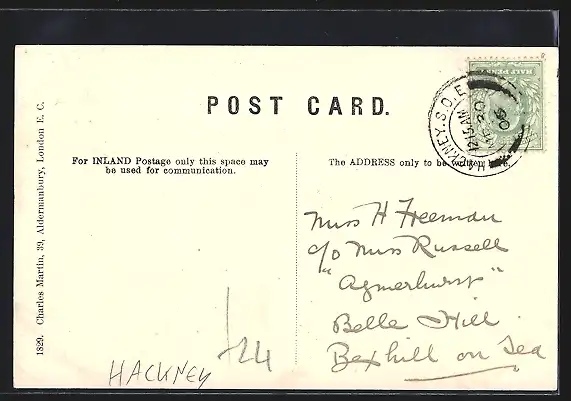 POST CARD.
For INLAND Postage only this space may
be used for communication.
The ADDRESS only to be written here.
HALF PENNY
HACKNEY. S.O.
12.15 AM
20
06
Miss H Freeman
c/o Miss Russell
"Agmerhurst"
Belle Hill.
Bexhill on Sea
1829. Charles Martin, 39, Aldermanbury, London E. C.
HACKNEY